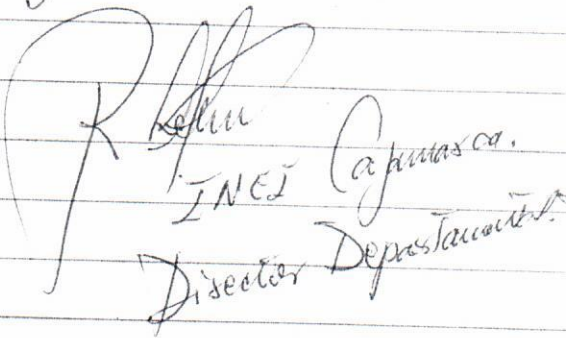 INEI Cajamarca.
Director Departamental.